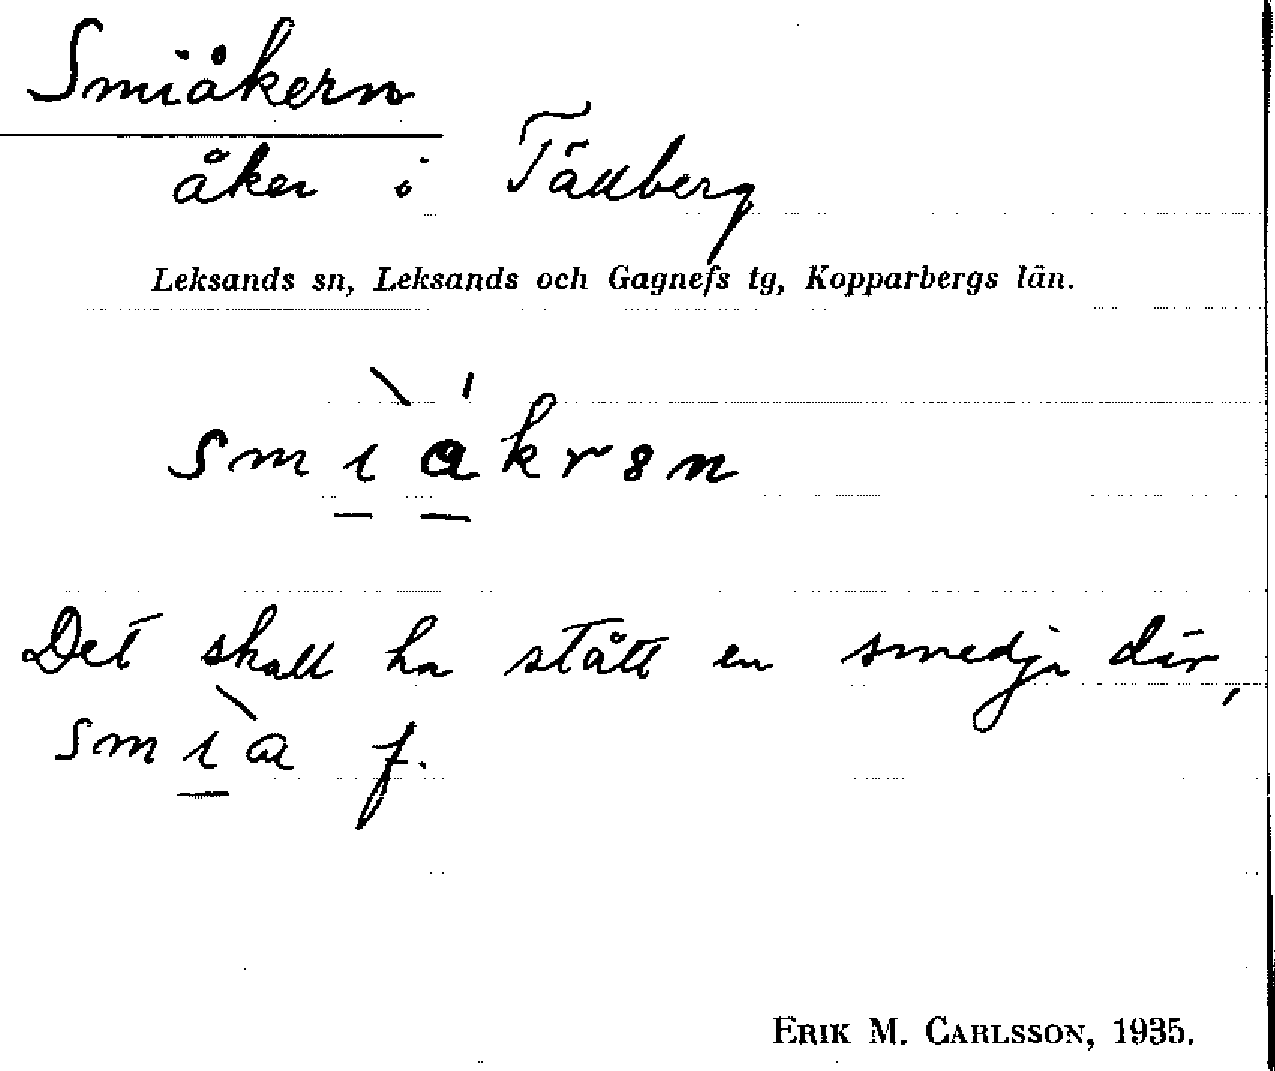 Smiåkern
åker i Tällberg
Leksands sn, Leksands och Gagnefs tg, Kopparbergs län.
smì̠á̠krən
Det skall ha stått en smedja där,
smì̠a f.
ERIK M. CARLSSON, 1935.